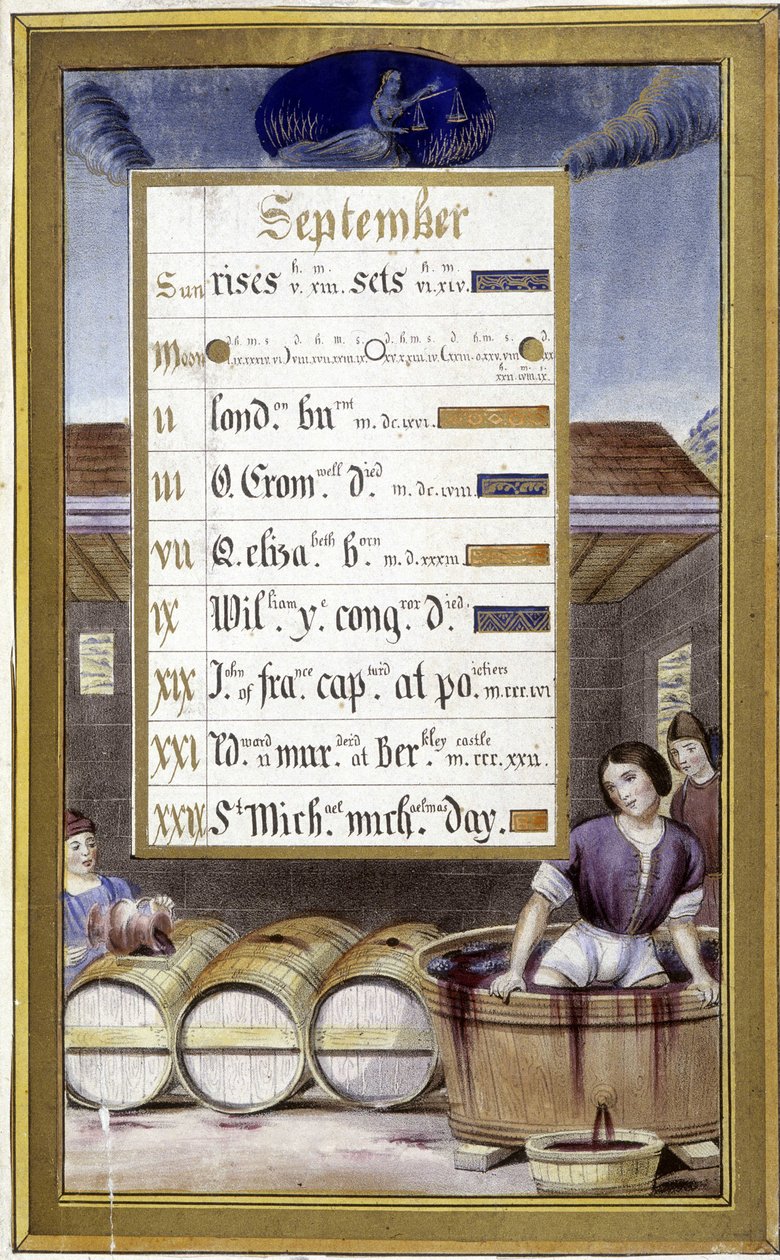 September
Sun rises h. m. v. xiii. sets h. m. vi. xiv.
Moon d. h. m. s. d. h. m. s. d. h. m. s. d. h. m. s. d.
h. m. s.
xxii. lviii. ix.
ii lond.on burnt m. dc. lxvi.
iii O. Cromwell. died. m. dc. lviii.
vii Q. elizabeth. born. m. d. xxxiii
ix William. ye. conqror. died.
xix John. of france. capturd. at poictiers. m. ccc. lvi
xxi Edward. ii murderd. at Berkley. castle m. ccc. xxii.
xxix St Michael. michaelmas. day.